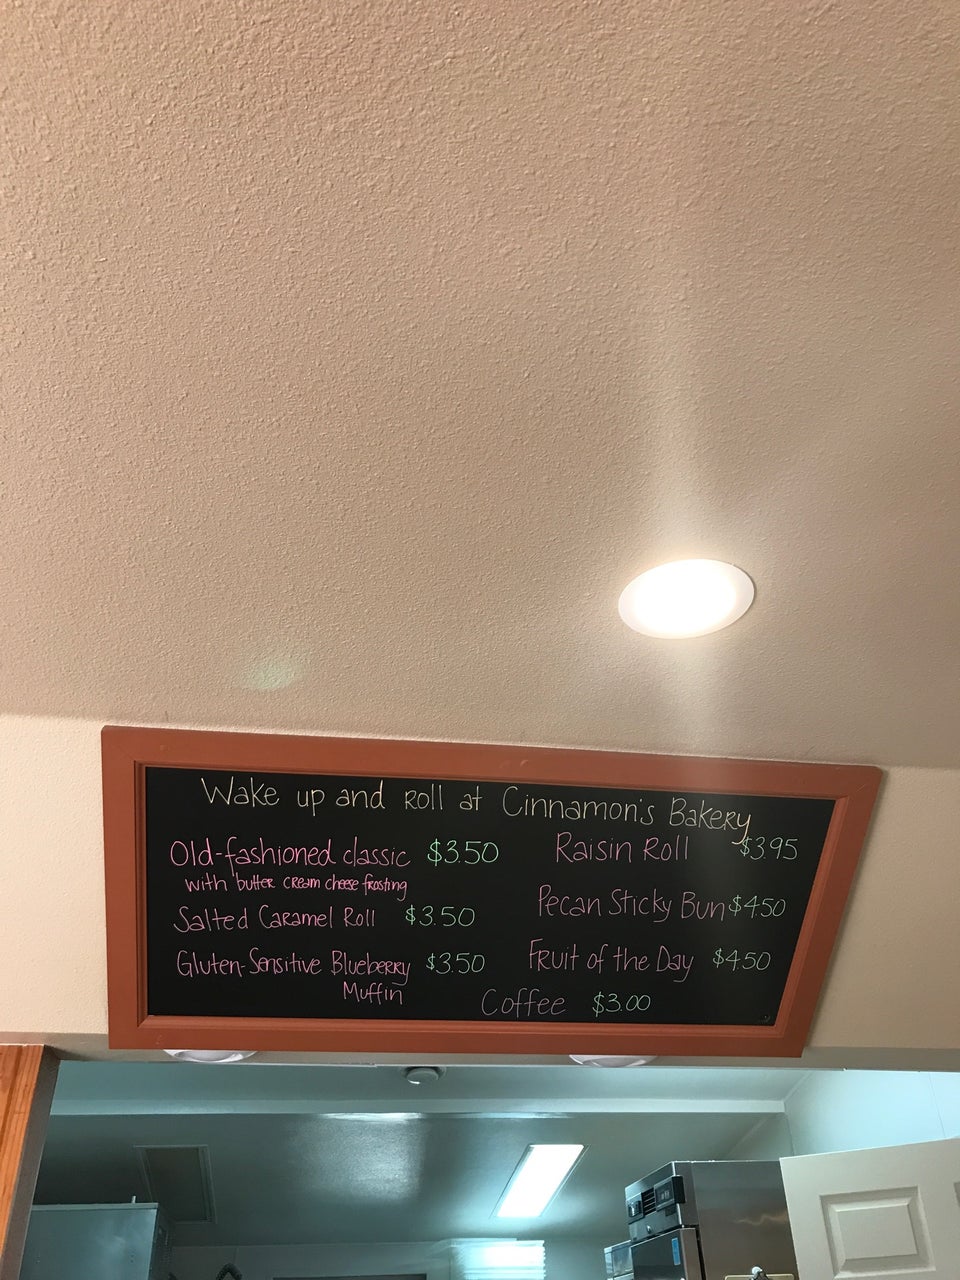 Wake up and Roll at Cinnamon's Bakery
Old-fashioned classic $3.50
with butter cream cheese frosting
Salted Caramel Roll $3.50
Gluten-Sensitive Blueberry $3.50
Muffin
Raisin Roll $3.95
Pecan Sticky Bun $4.50
Fruit of the Day $4.50
Coffee $3.00